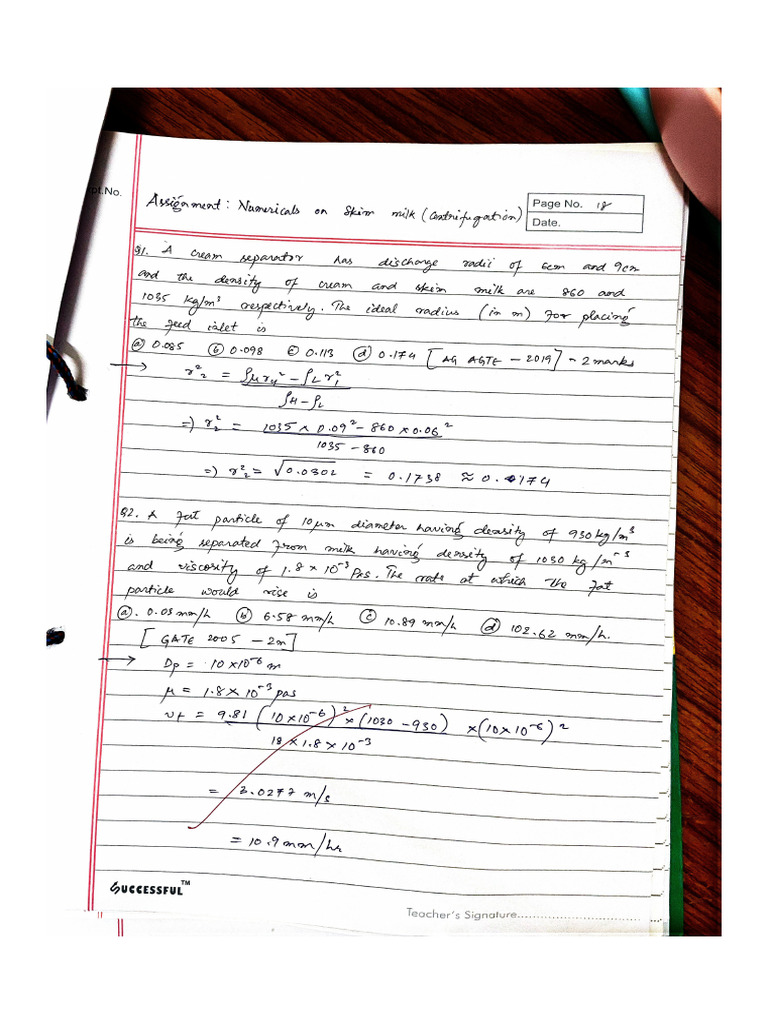 pt.No.
Assignment: Numericals on Skim milk (Centrifugation)
Page No. 18
Date.
Q1. A cream separator has discharge radii of 6cm and 9cm
and the density of cream and skim milk are 860 and
1035 kg/m³ respectively. The ideal radius (in m) For placing
the feed inlet is
(a) 0.085 (b) 0.098 (c) 0.113 (d) 0.174 [AG AGTE - 2019] - 2 marks
→ r₂² = ρ_H r_H² - ρ_L r₁²
ρ_H - ρ_L
⇒) r₂² = 1035 × 0.09² - 860 × 0.06²
1035 - 860
⇒) r₂² = √0.0302 = 0.1738 ≈ 0.174
Q2. A Fat particle of 10μm diameter having density of 930 kg/m³
is being separated from milk having density of 1030 kg/m⁻³
and viscosity of 1.8 × 10⁻³ Pas. The rate at which the fat
particle would rise is
(a). 0.03 mm/h (b) 6.58 mm/h (c) 10.89 mm/h (d) 102.62 mm/h.
[GATE 2005 - 2m]
→ Dp = 10×10⁻⁶ m
μ = 1.8 × 10⁻³ pas
vt = 9.81 (10×10⁻⁶)² × (1030 - 930) × (10×10⁻⁶)²
18 × 1.8 × 10⁻³
= 3.0277 m/s
= 10.9 mm/hr
SUCCESSFUL™
Teacher's Signature